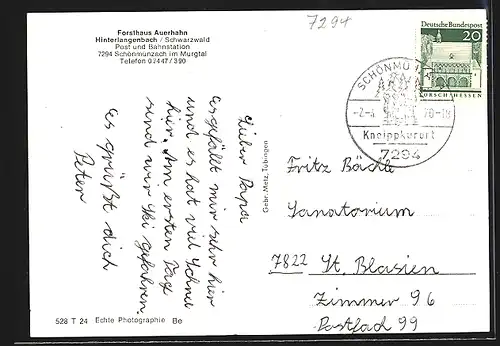 7294
Forsthaus Auerhahn
Hinterlangenbach / Schwarzwald
Post und Bahnstation
7294 Schönmünzach im Murgtal
Telefon 07447/390
Deutsche Bundespost
20
LORSCH/HESSEN
SCHÖNMÜ
-2.-4 70-18
Kneippkurort
7294
Lieber Papa
es gefällt mir sehr hier
und es hat viel Schnee
hier. Am ersten Tag
sind wir Ski gefahren.
Es grüßt dich
Peter
Gebr. Metz, Tübingen
Fritz Bächle
Sanatorium
7822 St. Blasien
Zimmer 96
Postfach 99
528 T 24 Echte Photographie Be